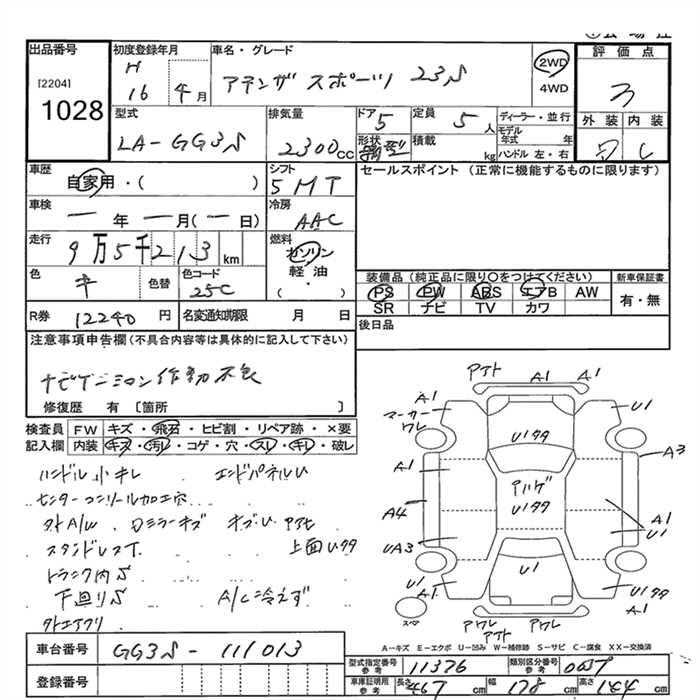 出品番号 初度登録年月 車名・グレード 評価点
[2204] H 16 年 月 アテンザ スポーツ 23S 2WD 4WD 3
1028
型式 排気量 ドア 5 定員 5 人 ディーラー・並行 外装 内装
LA-GG3S 2300 CC 形状 積載 kg モデル年式 年 ハンドル 左・右 C
車歴 シフト セールスポイント (正常に機能するものに限ります)
自家用・( ) 5MT
車検 冷房
ー 年 ー 月 (ー 日) AAC
走行 燃料
9万5千213 km ガソリン
軽油
・( )
色 キ 色替 色コード 25C
装備品 (純正品に限り○をつけてください) 新車保証書
PS PW ABS エアB AW 有・無
SR ナビ TV カワ
R券 12240 円 名変通知期限 月 日
後日品
注意事項申告欄(不具合内容等は具体的に記入して下さい)
ナビゲーション作動不良
修復歴 有 〔箇所 〕
検査員記入欄 FW キズ・飛石・ヒビ割・リペア跡・×要
内装 キズ・汚レ・コゲ・穴・スレ・キレ・破レ
ハンドル小キレ エンドパネルU
センターコンソール加工穴
外A/W Dミラーキズ
スタンドレスT. 上面Uタタ
トランク内S
下廻りS A/C冷えず
外エアクリ
アト A1 A1
A1 U1
マーカーワレ
Uタタ
A1 A3
アハゲ
Uタタ
A4 A1
UA3 U1
U1 U1 Uタタ
A1 A1
スペア
アワレ アワレ
アト
A−キズ E−エクボ U−凹み W−補修跡 S−サビ C−腐食 XX−交換済
車台番号 GG3S-111013
登録番号
型式指定番号 参考 11376 類別区分番号 参考
車庫証明用 参考 長さ 467 cm 幅 178 cm 高さ 144 cm